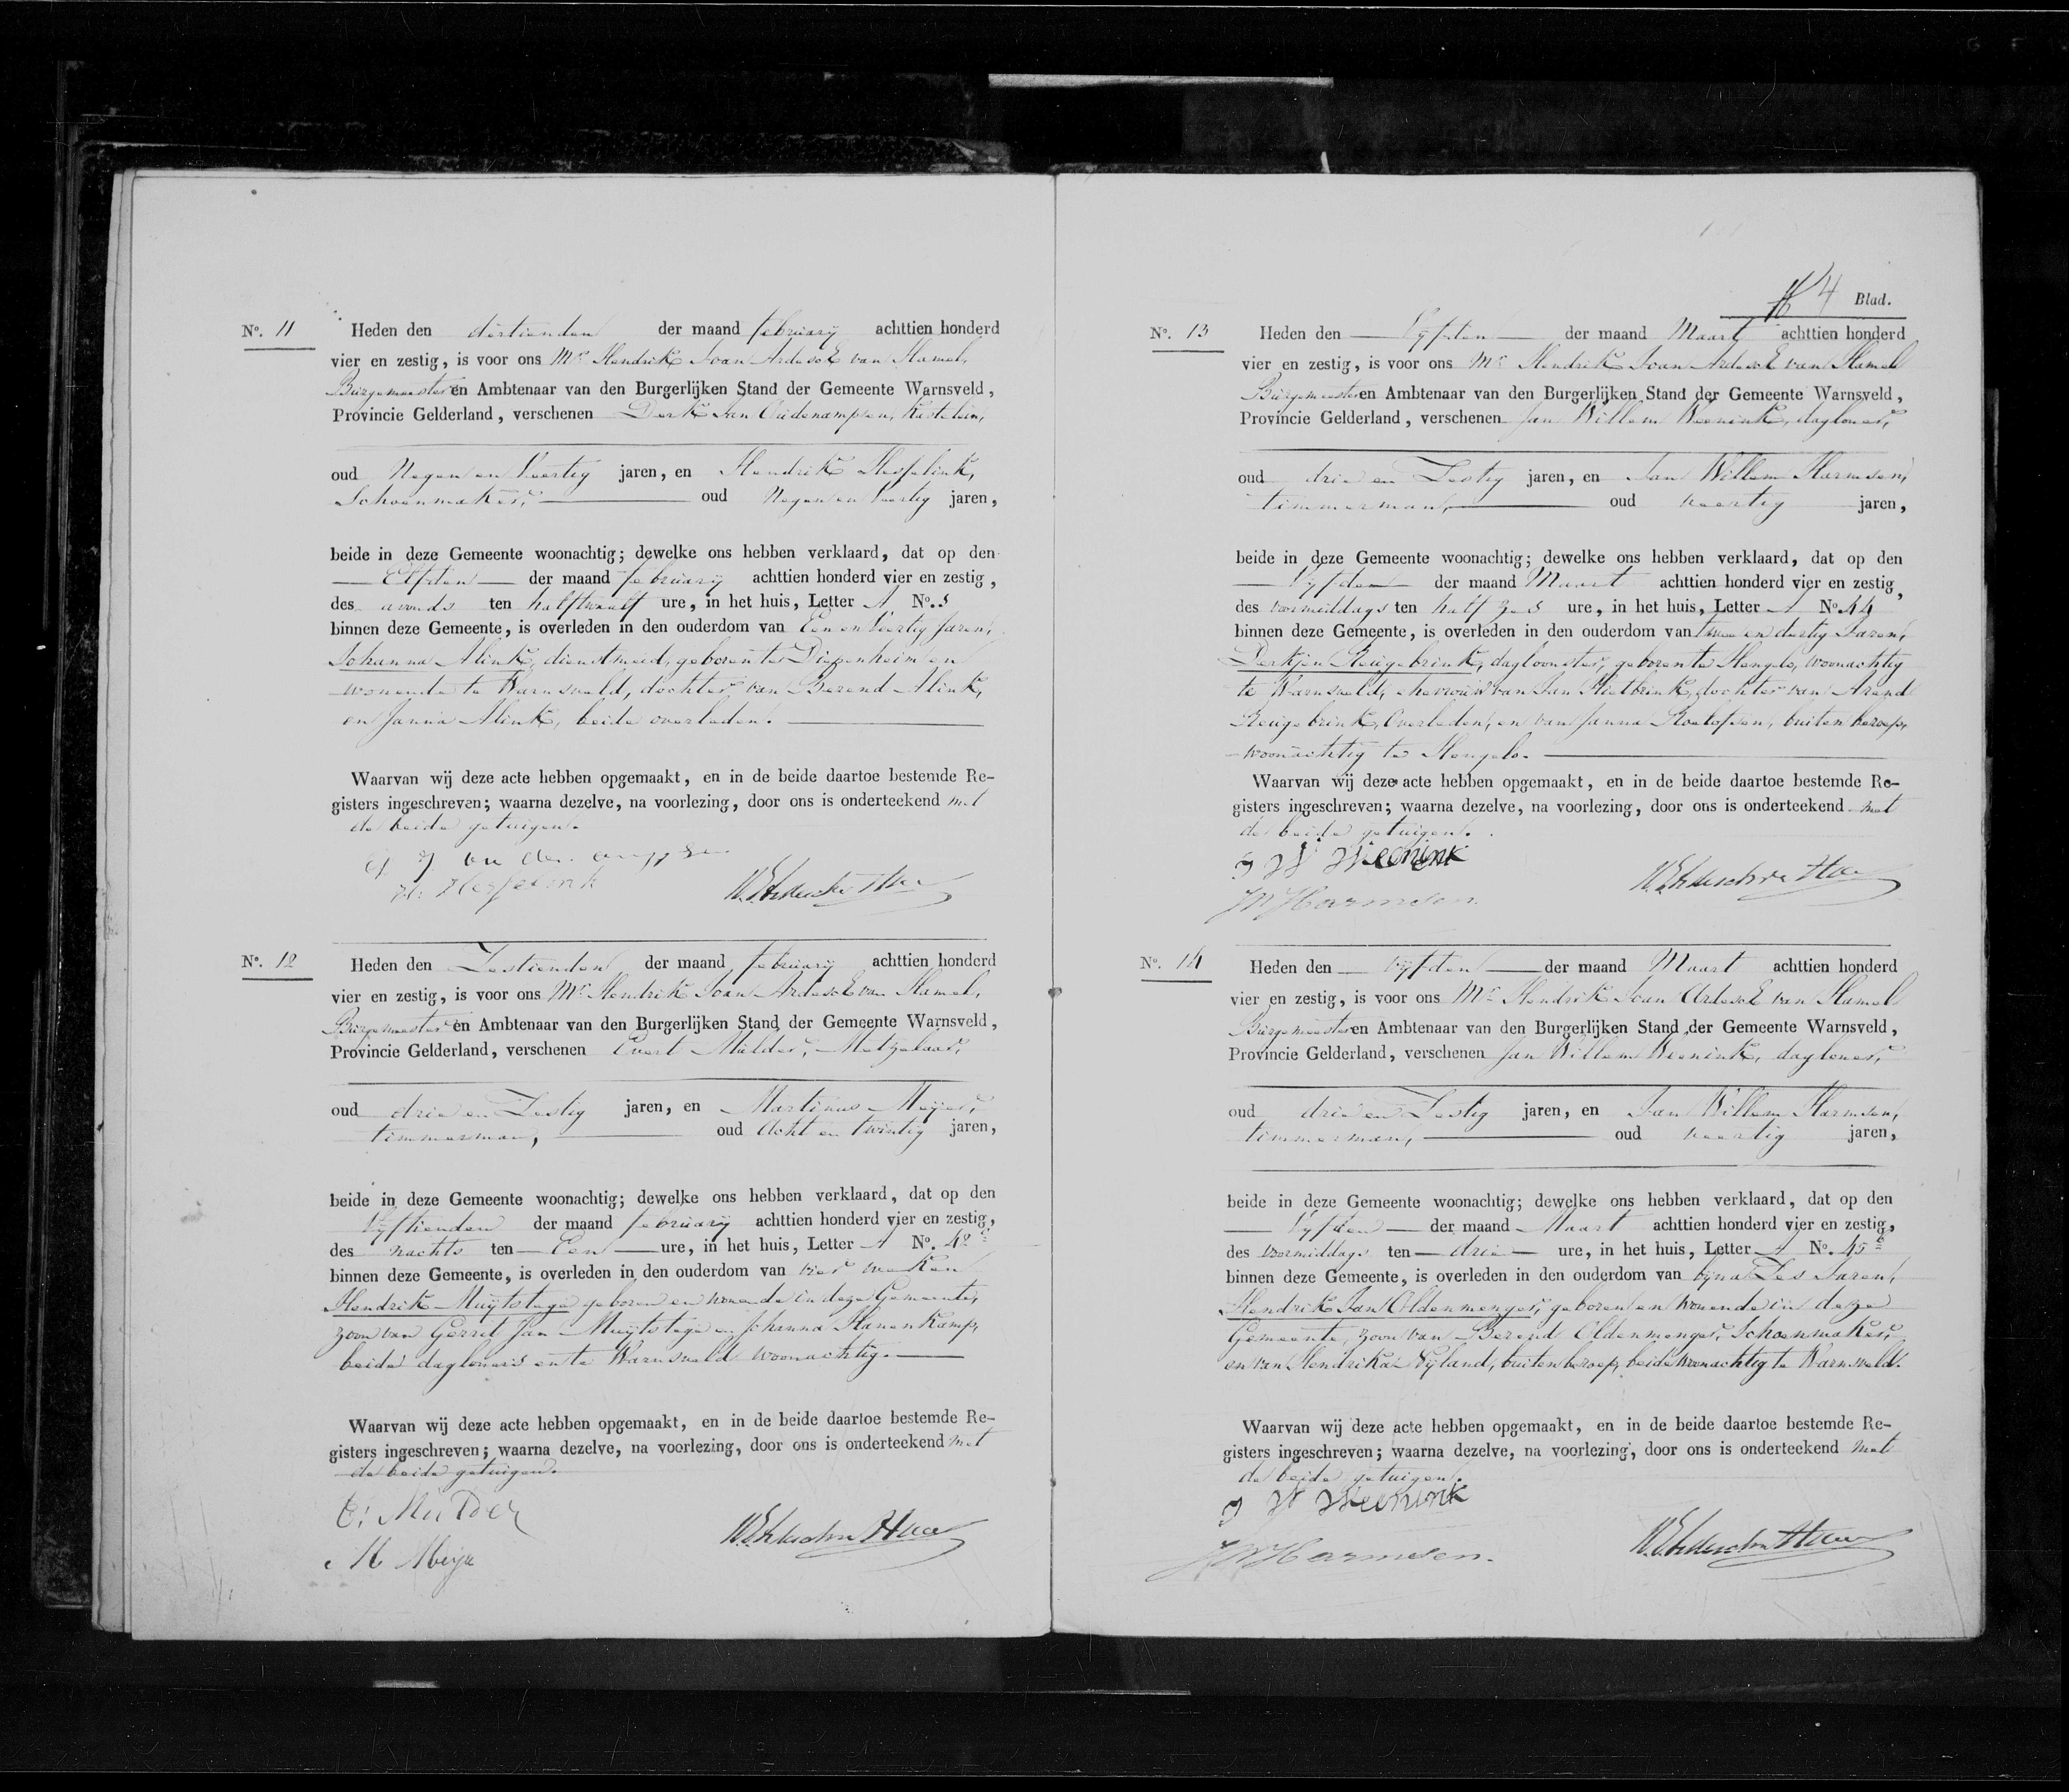 No. 11 Heden den dertienden der maand februarij achttien honderd
vier en zestig, is voor ons Mr Hendrik Joan Ardesch van Hamel,
Burgemeester en Ambtenaar van den Burgerlijken Stand der Gemeente Warnsveld,
Provincie Gelderland, verschenen Derk Jan Oudenampsen, Kastelein,
oud Negen en Veertig jaren, en Hendrik Hesselink,
Schoenmaker, oud Negen en Veertig jaren,
beide in deze Gemeente woonachtig; dewelke ons hebben verklaard, dat op den
Elfden der maand februarij achttien honderd vier en zestig,
des avonds ten half twaalf ure, in het huis, Letter A No.
binnen deze Gemeente, is overleden in den ouderdom van Een en Veertig Jaren,
Johanna Alink, dienstmeid, geboren te Diepenheim en
wonende te Warnsveld, dochter van Berend Alink,
en Janna Alink, beide overleden.
Waarvan wij deze acte hebben opgemaakt, en in de beide daartoe bestemde Re-
gisters ingeschreven; waarna dezelve, na voorlezing, door ons is onderteekend met
de beide getuigen.
H. Hesselink
No. 12 Heden den Zestienden der maand februarij achttien honderd
vier en zestig, is voor ons Mr Hendrik Joan Ardesch van Hamel,
Burgemeester en Ambtenaar van den Burgerlijken Stand der Gemeente Warnsveld,
Provincie Gelderland, verschenen Evert Mulder, Metzelaar,
oud drie en Zestig jaren, en Martinus Meijer,
timmerman, oud Acht en twintig jaren,
beide in deze Gemeente woonachtig; dewelke ons hebben verklaard, dat op den
Vijftienden der maand februarij achttien honderd vier en zestig,
des nachts ten Een ure, in het huis, Letter A No. 42
binnen deze Gemeente, is overleden in den ouderdom van vier weken
Hendrik Muijtstege geboren en wonende in deze Gemeente,
zoon van Gerrit Jan Muijtstege en Johanna Hanenkamp,
beide dagloners en te Warnsveld woonachtig.
Waarvan wij deze acte hebben opgemaakt, en in de beide daartoe bestemde Re-
gisters ingeschreven; waarna dezelve, na voorlezing, door ons is onderteekend met
de beide getuigen.
E. Mulder
M Meije
4 Blad.
No. 13 Heden den Vijfden der maand Maart achttien honderd
vier en zestig, is voor ons Mr Hendrik Joan Ardesch van Hamel
Burgemeester en Ambtenaar van den Burgerlijken Stand der Gemeente Warnsveld,
Provincie Gelderland, verschenen Jan Willem Weenink, dagloner,
oud drie en Zestig jaren, en Jan Willem Harmsen,
timmerman, oud veertig jaren,
beide in deze Gemeente woonachtig; dewelke ons hebben verklaard, dat op den
Vijfden der maand Maart achttien honderd vier en zestig,
des voormiddags ten half zes ure, in het huis, Letter A No. 44
binnen deze Gemeente, is overleden in den ouderdom van twee en dertig Jaren,
Derkjen Reugebrink, dagloonster, geboren te Hengelo, woonachtig
te Warnsveld, ehevrouw van Jan Rietbrink, dochter van Arend
Reugebrink, Overleden, en van Janna Roelofsen, buiten beroep,
woonachtig te Hengelo.
Waarvan wij deze acte hebben opgemaakt, en in de beide daartoe bestemde Re-
gisters ingeschreven; waarna dezelve, na voorlezing, door ons is onderteekend met
de beide getuigen.
J W Weenink
JW Harmsen.
No. 14 Heden den vijfden der maand Maart achttien honderd
vier en zestig, is voor ons Mr Hendrik Joan Ardesch van Hamel
Burgemeester en Ambtenaar van den Burgerlijken Stand der Gemeente Warnsveld,
Provincie Gelderland, verschenen Jan Willem Weenink, dagloner,
oud drie en Zestig jaren, en Jan Willem Harmsen,
timmerman, oud veertig jaren,
beide in deze Gemeente woonachtig; dewelke ons hebben verklaard, dat op den
Vijfden der maand Maart achttien honderd vier en zestig,
des voormiddags ten drie ure, in het huis, Letter A No. 45 b
binnen deze Gemeente, is overleden in den ouderdom van bijna Zes Jaren,
Hendrik Jan Oldenmenger, geboren en wonende in deze
Gemeente, zoon van Berend Oldenmenger, Schoenmaker,
en van Hendrika Nijland, buiten beroep, beide woonachtig te Warnsveld.
Waarvan wij deze acte hebben opgemaakt, en in de beide daartoe bestemde Re-
gisters ingeschreven; waarna dezelve, na voorlezing, door ons is onderteekend met
de beide getuigen.
J W Weenink
JW Harmsen.